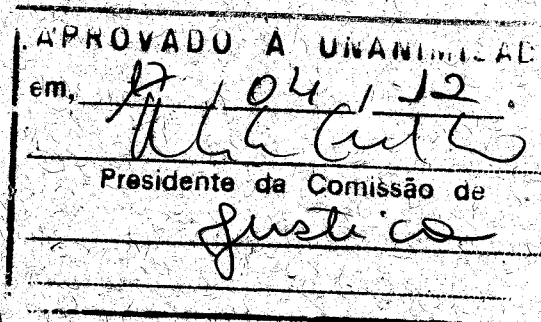 APROVADO A UNANIMIDAD
em, 17 / 04 / 12.
Presidente da Comissão de
Justiça